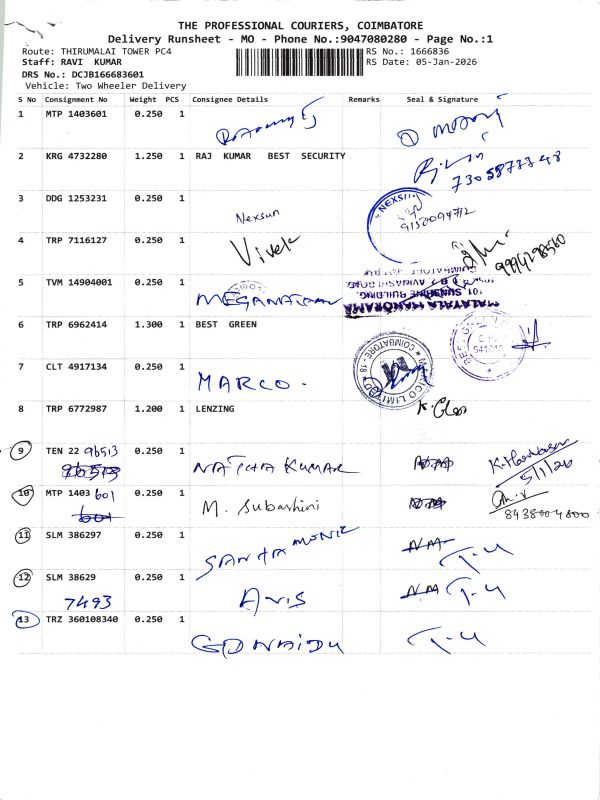 THE PROFESSIONAL COURIERS, COIMBATORE
Delivery Runsheet - MO - Phone No.:9047080280 - Page No.:1
Route: THIRUMALAI TOWER PC4
RS No.: 1666836
Staff: RAVI KUMAR
RS Date: 05-Jan-2026
DRS No.: DCJB166683601
Vehicle: Two Wheeler Delivery
S No Consignment No Weight PCS Consignee Details Remarks Seal & Signature
1 MTP 1403601 0.250 1
2 KRG 4732280 1.250 1 RAJ KUMAR BEST SECURITY
3 DDG 1253231 0.250 1 Nexsun
4 TRP 7116127 0.250 1 Vivek
5 TVM 14904001 0.250 1
MALAYALA MANORAMA
101 SUNSHINE BUILDING,
6 TRP 6962414 1.300 1 BEST GREEN
7 CLT 4917134 0.250 1 MARCO.
COIMBATORE - 18
8 TRP 6772987 1.200 1 LENZING
9 TEN 22 96513 0.250 1 NATCHA KUMAR
5/1/26
10 MTP 1403 601 0.250 1 M. Subashini
8438004800
11 SLM 386297 0.250 1 NM T-4
12 SLM 38629 0.250 1 AVIS NM T-4
7493
13 TRZ 360108340 0.250 1 GD NAIDU T-4